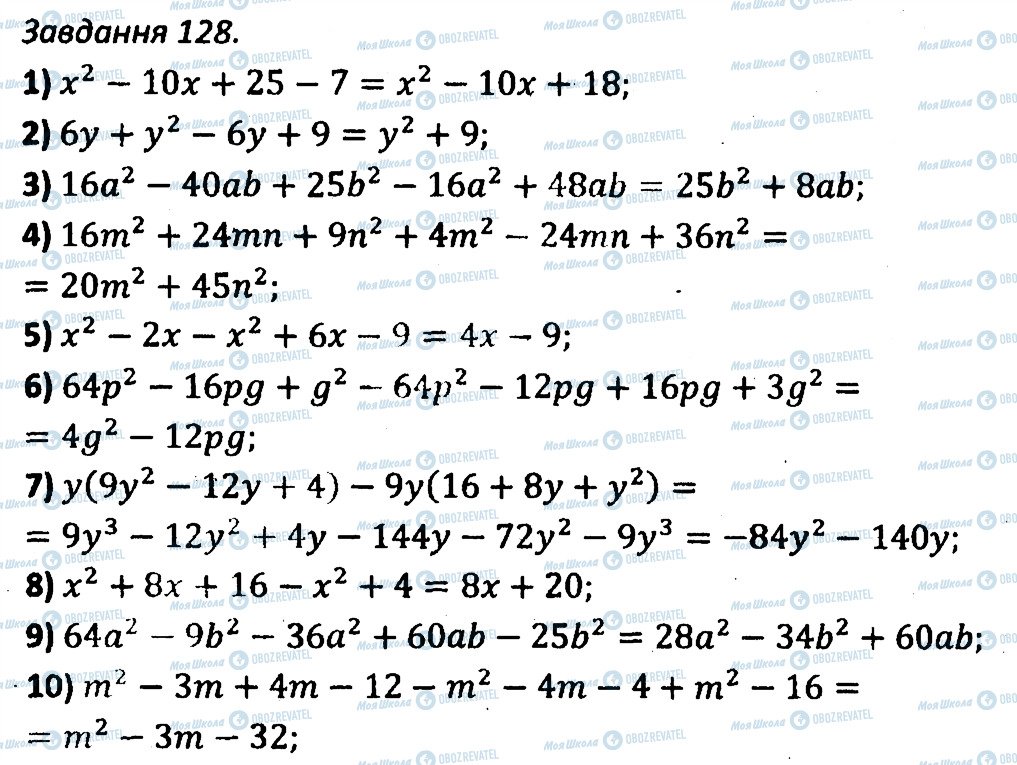 Завдання 128.
1) x² − 10x + 25 − 7 = x² − 10x + 18;
2) 6y + y² − 6y + 9 = y² + 9;
3) 16a² − 40ab + 25b² − 16a² + 48ab = 25b² + 8ab;
4) 16m² + 24mn + 9n² + 4m² − 24mn + 36n² =
= 20m² + 45n²;
5) x² − 2x − x² + 6x − 9 = 4x − 9;
6) 64p² − 16pg + g² − 64p² − 12pg + 16pg + 3g² =
= 4g² − 12pg;
7) y(9y² − 12y + 4) − 9y(16 + 8y + y²) =
= 9y³ − 12y² + 4y − 144y − 72y² − 9y³ = −84y² − 140y;
8) x² + 8x + 16 − x² + 4 = 8x + 20;
9) 64a² − 9b² − 36a² + 60ab − 25b² = 28a² − 34b² + 60ab;
10) m² − 3m + 4m − 12 − m² − 4m − 4 + m² − 16 =
= m² − 3m − 32;
Моя Школа OBOZREVATEL